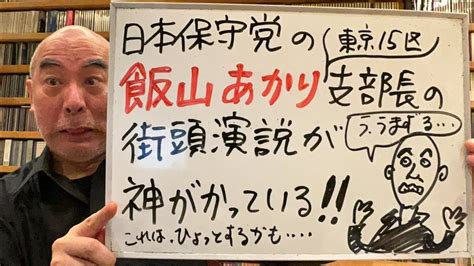 日本保守党の
東京15区
飯山あかり支部長の
街頭演説が
う、うますぎる…
神がかっている!!
これは、ひょっとするかも‥‥